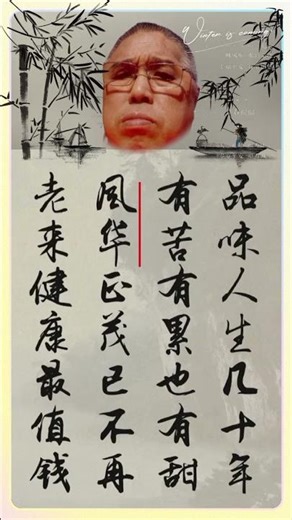 Winter is coming
品味人生几十年
有苦有累也有甜
风华正茂已不再
老来健康最值钱